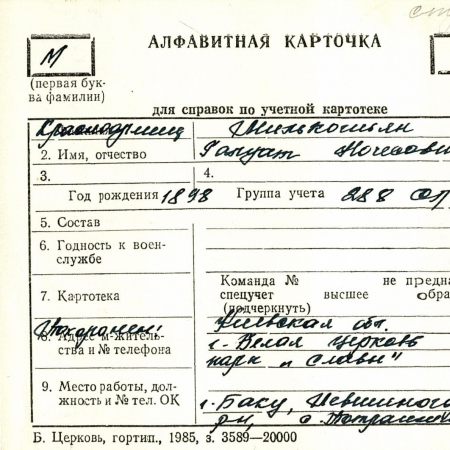 М
АЛФАВИТНАЯ КАРТОЧКА
(первая бук-
ва фамилии)
для справок по учетной картотеке
Красноармеец
2. Имя, отчество
3. 4.
Год рождения 1898 Группа учета 288
5. Состав
6. Годность к воен-
службе
Команда № не предна
7. Картотека спецучет высшее обра
(подчеркнуть)
Похоронен: Киевская обл.
8. Адрес м-житель- г. Белая Церковь
ства и № телефона парк „Славы"
9. Место работы, дол-
жность и № тел. ОК г. Баку,
р-н, с.
Б. Церковь, гортип., 1985, з. 3589—20000